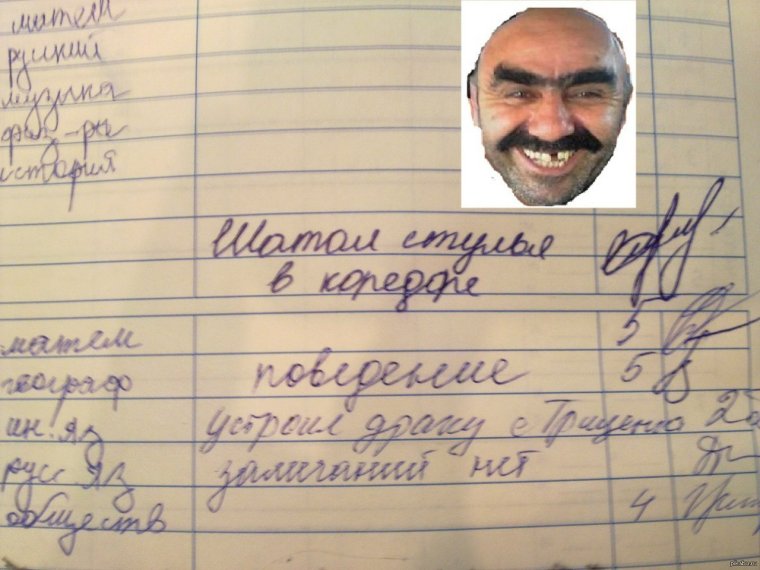 матем
руский
музыка
физ-ра
история
Шатал стулья
в коредоре
матем 5
географ поведение 5
ин. яз устроил драку с Гриценко 2
рус яз замичаний нет
обществ 4
pikabu.ru